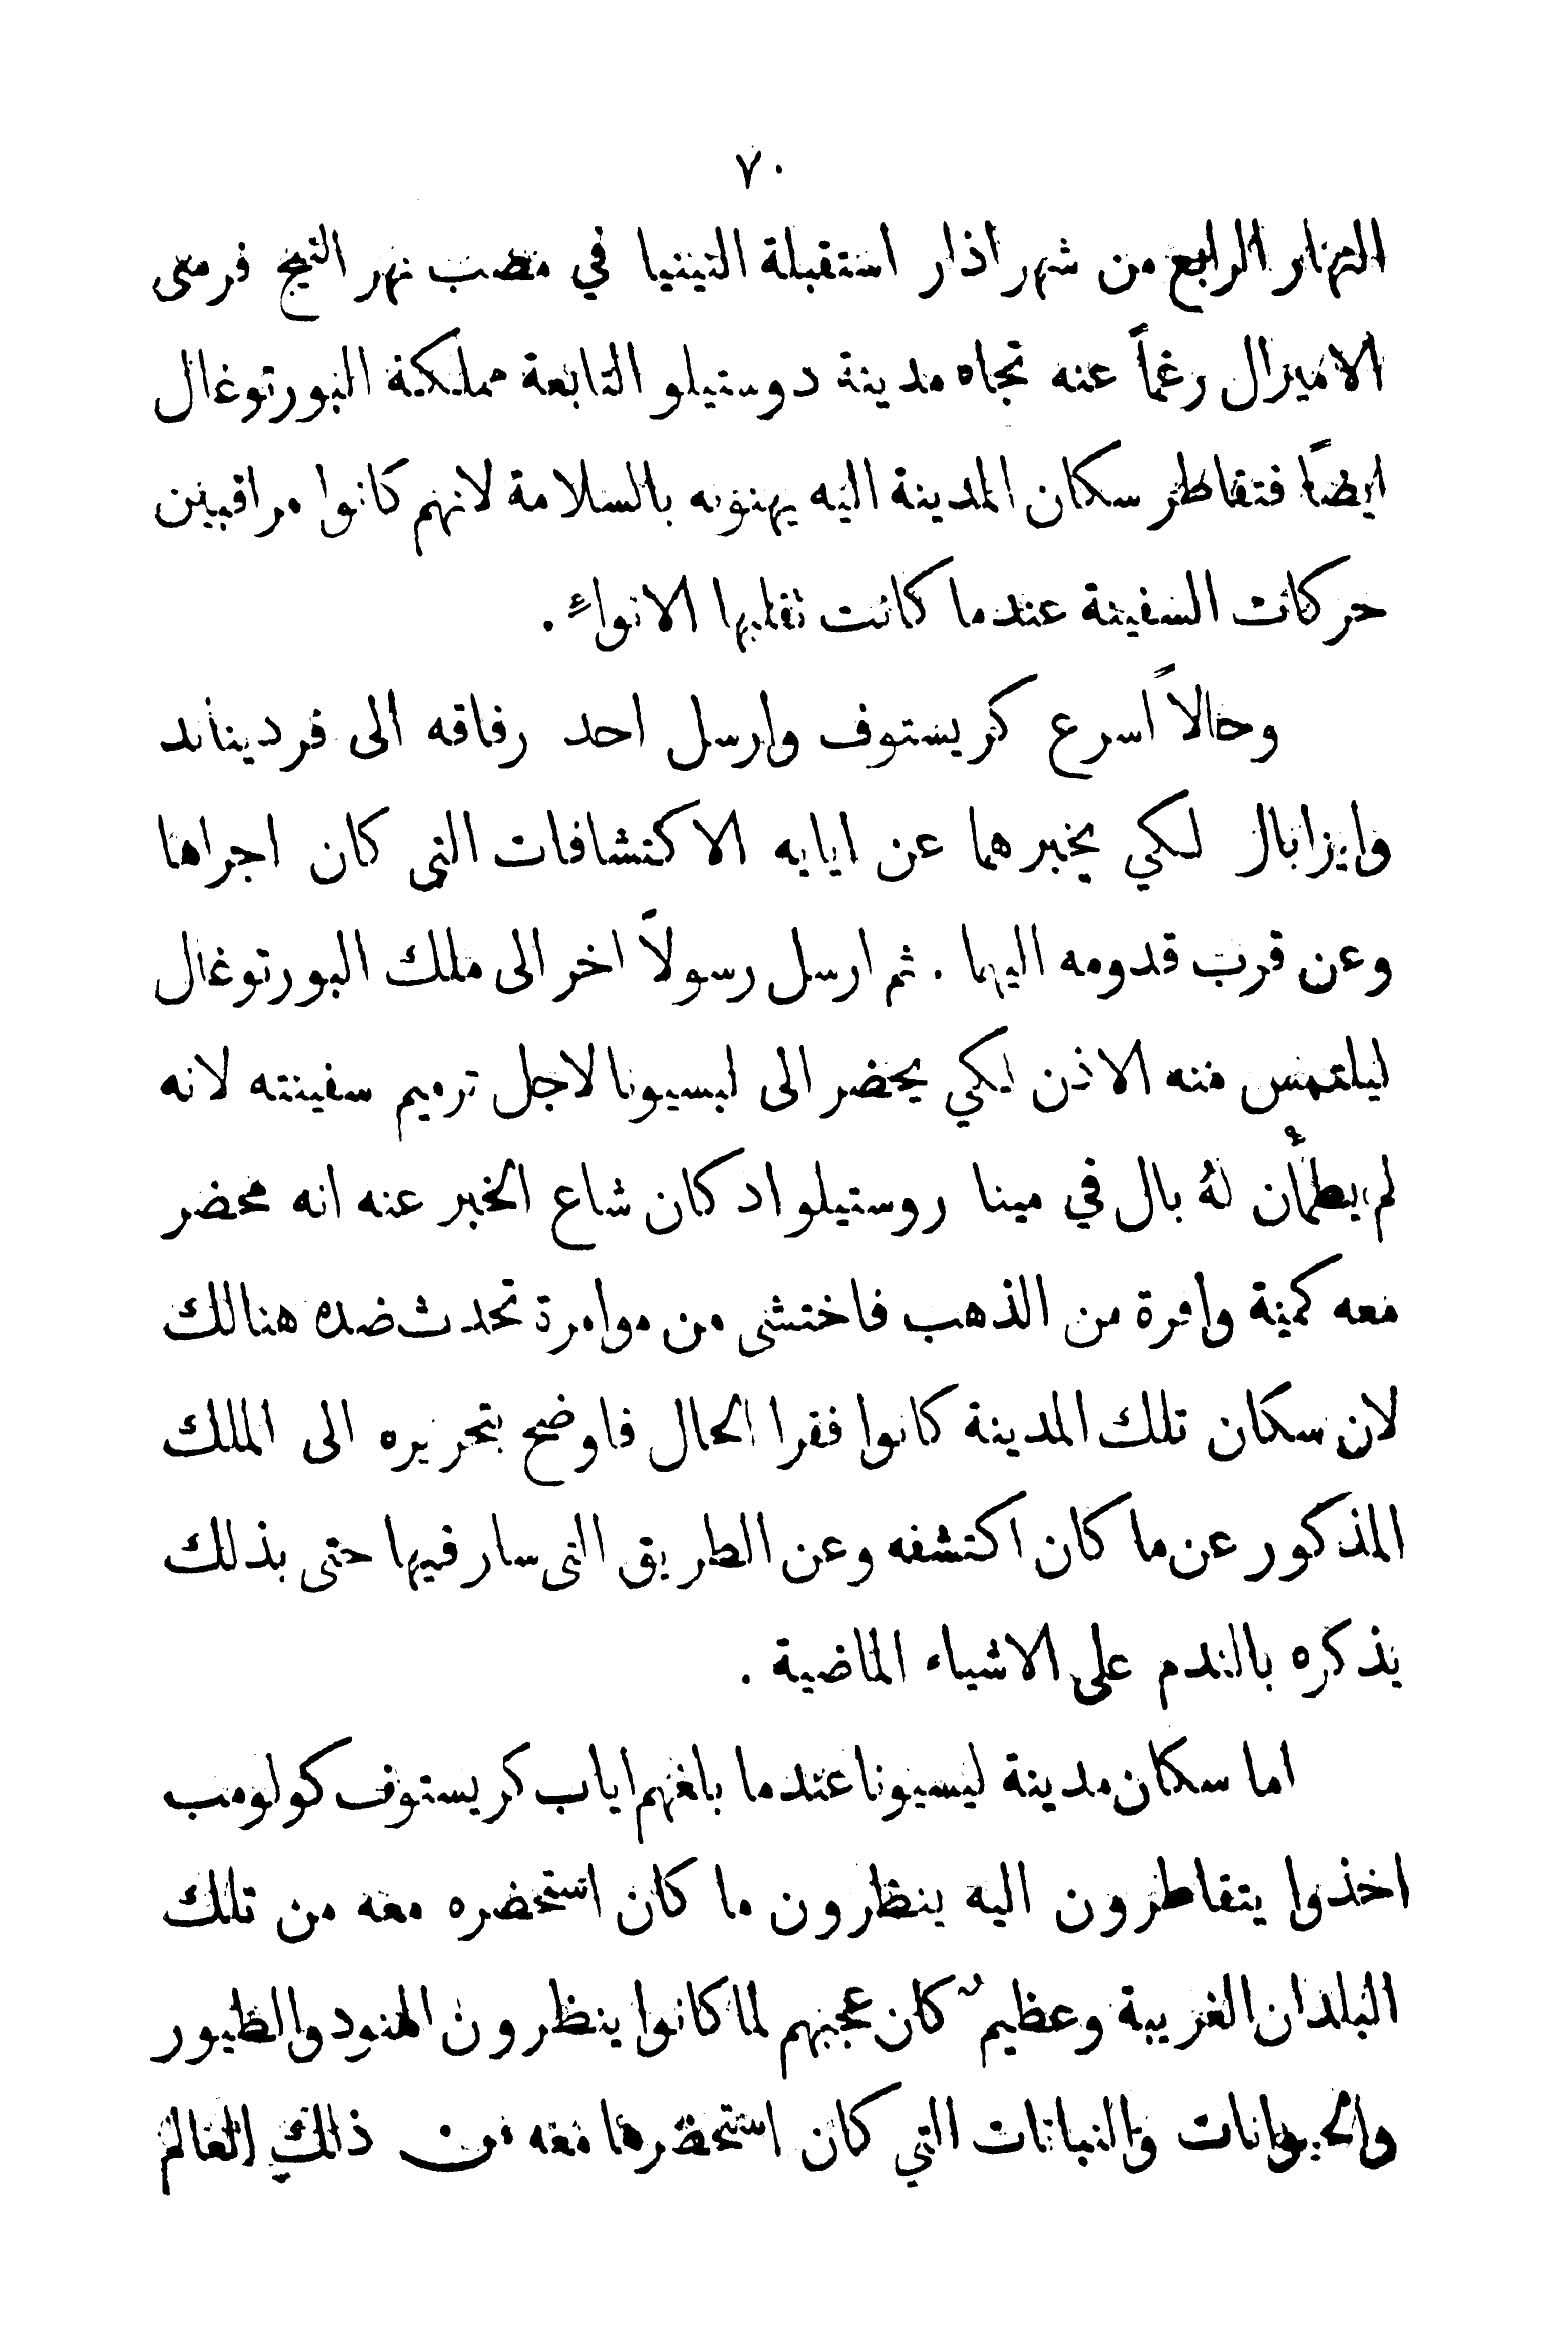 ٧٠
النهار الرابع من شهر اذار استقبلة التينيا في مصب نهر التيج فرمى
الاميرال رغماً عنه تجاه مدينة دوستيلو التابعة مملكة البورتوغال
ايضاً فتقاطر سكان المدينة اليه يهنونه بالسلامة لانهم كانوا مراقبين
حركات السفينة عندما كانت تقلبها الانواء.
وحالاً اسرع كريستوف وارسل احد رفاقه الى فرديناند
وايزابال لكي يخبرهما عن ايابه الاكتشافات التي كان اجراها
وعن قرب قدومه اليهما . ثم ارسل رسولاً اخر الى ملك البورتوغال
ليلتمس منه الاذن لكي يحضر الى ليسبونا لاجل ترميم سفينته لانه
لم يطمأن لهُ بال في مينا روستيلو اد كان شاع الخبر عنه انه محضر
معه كمية وافرة من الذهب فاختشى من موامرة تحدث ضده هنالك
لان سكان تلك المدينة كانوا فقرا الحال فاوضح بتحريره الى الملك
المذكور عن ما كان اكتشفه وعن الطريق التي سار فيها حتى بذلك
يذكره بالندم على الاشياء الماضية .
اما سكان مدينة ليسبونا عندما بلغهم اياب كريستوف كولومب
اخذوا يتقاطرون اليه ينظرون ما كان استحضره معه من تلك
البلدان الغريبة وعظيم كان عجبهم لما كانوا ينظرون الهنود والطيور
والحيوانات والنباتات التي كان استحضرها معه من ذلك العالم